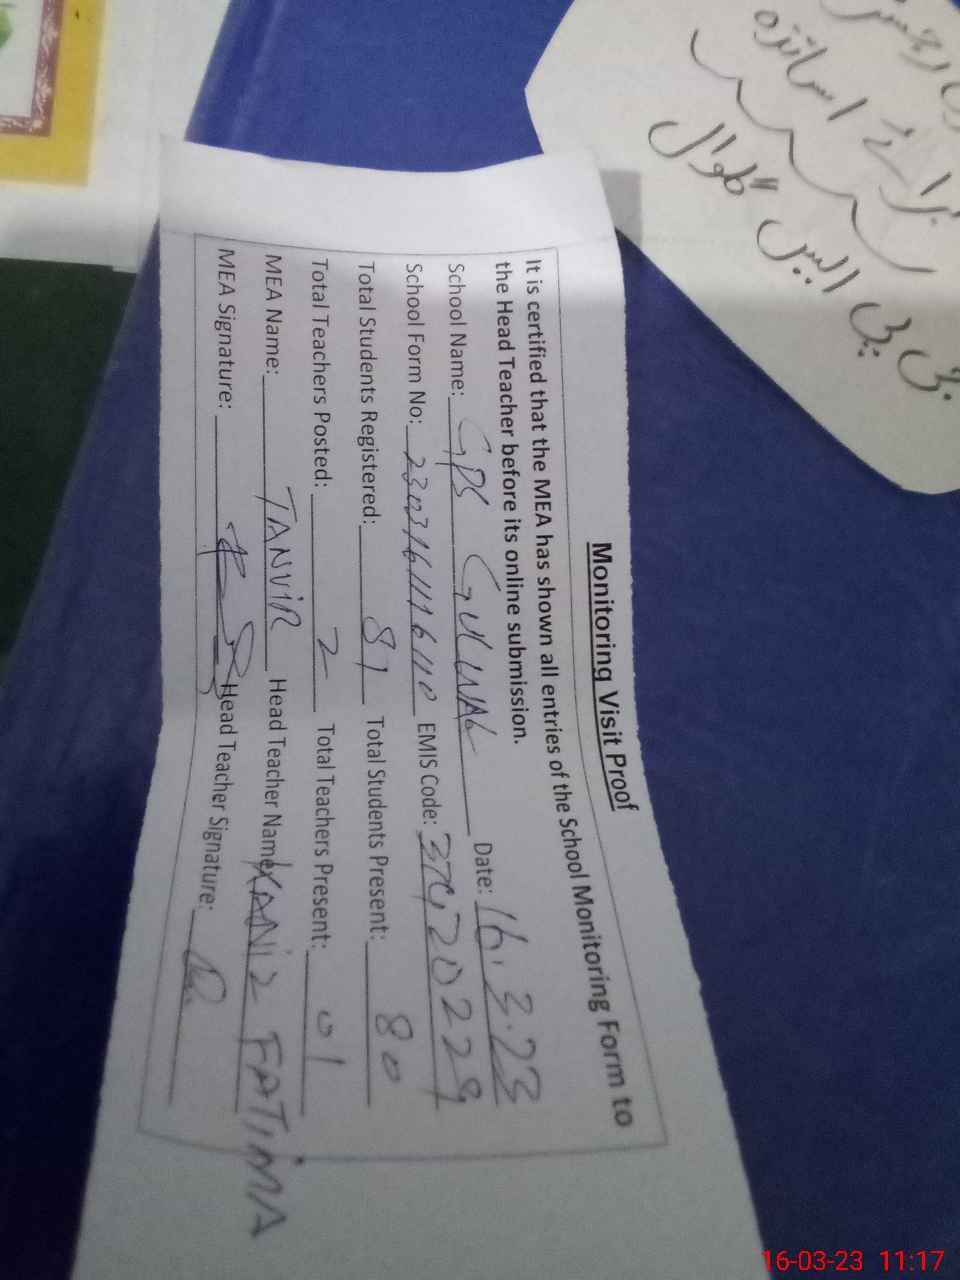 Monitoring Visit Proof
It is certified that the MEA has shown all entries of the School Monitoring Form to
the Head Teacher before its online submission.
School Name: GPS GULWAL Date: 16.3.23
School Form No: EMIS Code: 37420229
Total Students Registered: 81 Total Students Present: 80
Total Teachers Posted: 2 Total Teachers Present: 01
MEA Name: TANVIR Head Teacher Name: KANIZ FATIMA
MEA Signature: Head Teacher Signature:
برائے اساتذہ
جی پی ایس گلوال
16-03-23 11:17